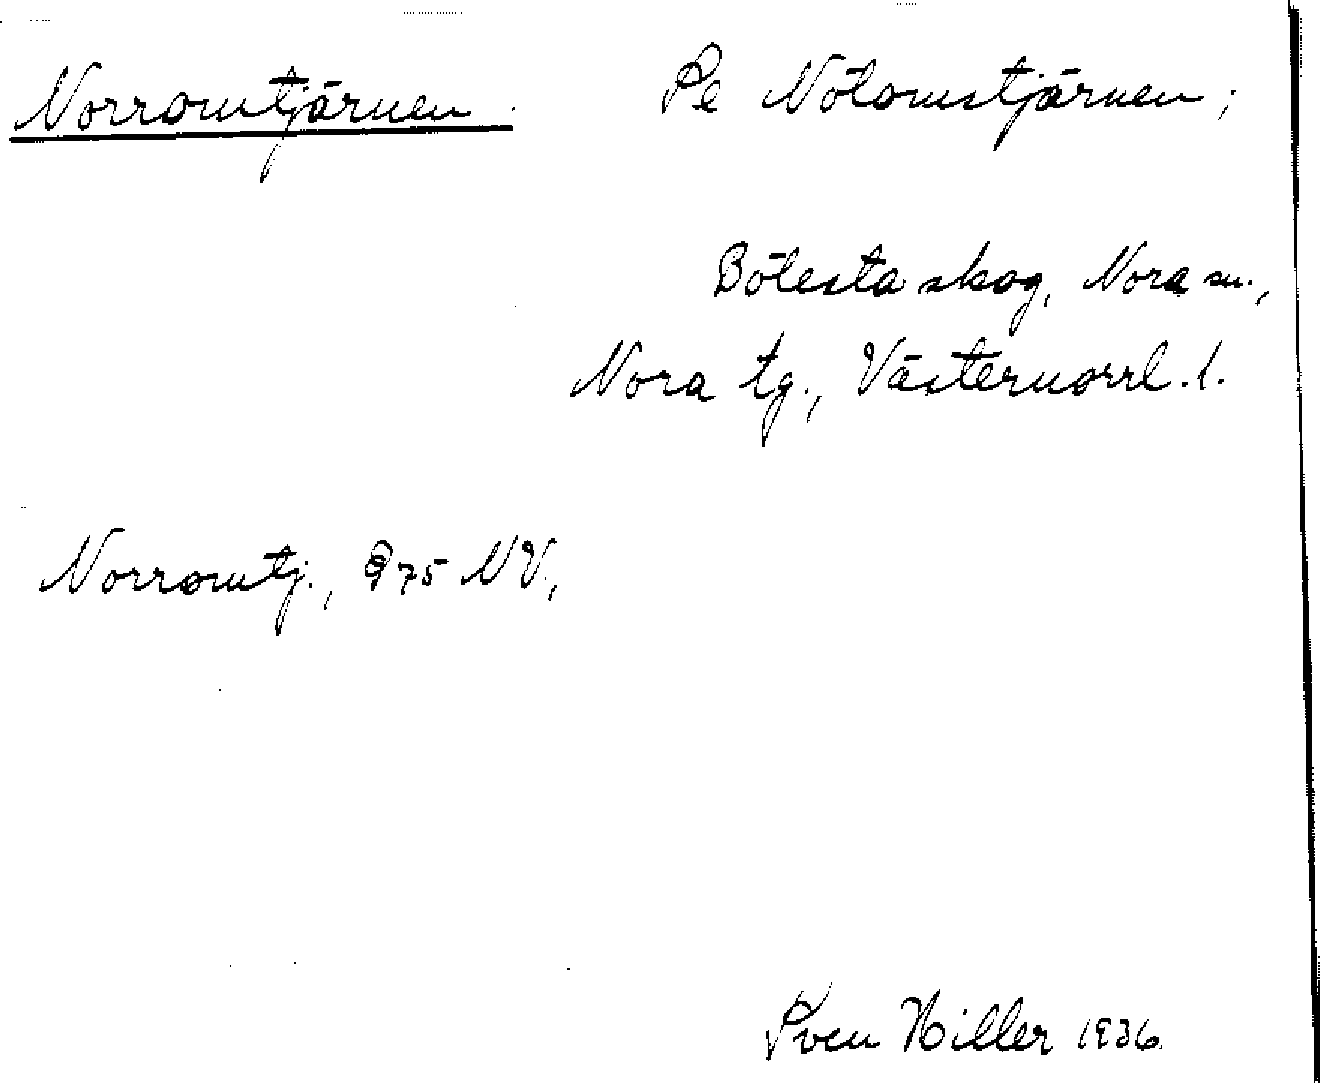 Norromtjärnen. Se Nölomstjärnen;
Bölesta skog, Nora sn.,
Nora tg., Västernorrl. l.
Norromtj., G 75 NV.,
Sven Hiller 1936